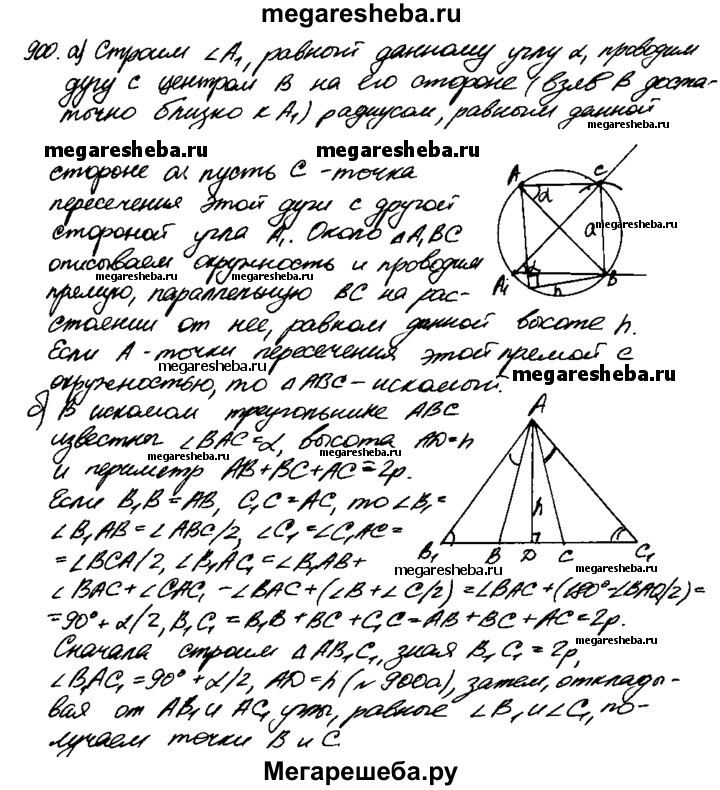 megaresheba.ru
900. а) Строим ∠A₁, равный данному углу α, проводим
дугу с центром B на его стороне (взяв B доста-
точно близко к A₁) радиусом, равным данной
megaresheba.ru megaresheba.ru
стороне a. пусть C - точка
пересечения этой дуги с другой
стороной угла A₁. Около △A₁BC
описываем окружность и проводим
прямую, параллельную BC на рас-
стоянии от нее, равном данной высоте h.
Если A - точки пересечения этой прямой с
окружностью, то △ABC - искомый.
A C
α
a
A₁ h B
megaresheba.ru
megaresheba.ru
megaresheba.ru
megaresheba.ru
megaresheba.ru
megaresheba.ru
б) В искомом треугольнике ABC
известны ∠BAC=α, высота AD=h
и периметр AB+BC+AC=2p.
Если B₁B=AB, C₁C=AC, то ∠B₁=
∠B₁AB=∠ABC/2, ∠C₁=∠C₁AC=
=∠BCA/2, ∠B₁AC₁=∠B₁AB+
∠BAC+∠CAC₁ -∠BAC+(∠B+∠C/2)=∠BAC+(180°-∠BAC/2)=
=90°+α/2, B₁C₁=B₁B+BC+C₁C=AB+BC+AC=2p.
Сначала строим △AB₁C₁, зная B₁C₁=2p,
∠B₁AC₁=90°+α/2, AD=h (№900а), затем, отклады-
вая от AB₁ и AC₁ углы, равные ∠B₁ и ∠C₁, по-
лучаем точки B и C.
A
h
B₁ B D C C₁
megaresheba.ru
megaresheba.ru
megaresheba.ru
megaresheba.ru
Мегарешеба.ру